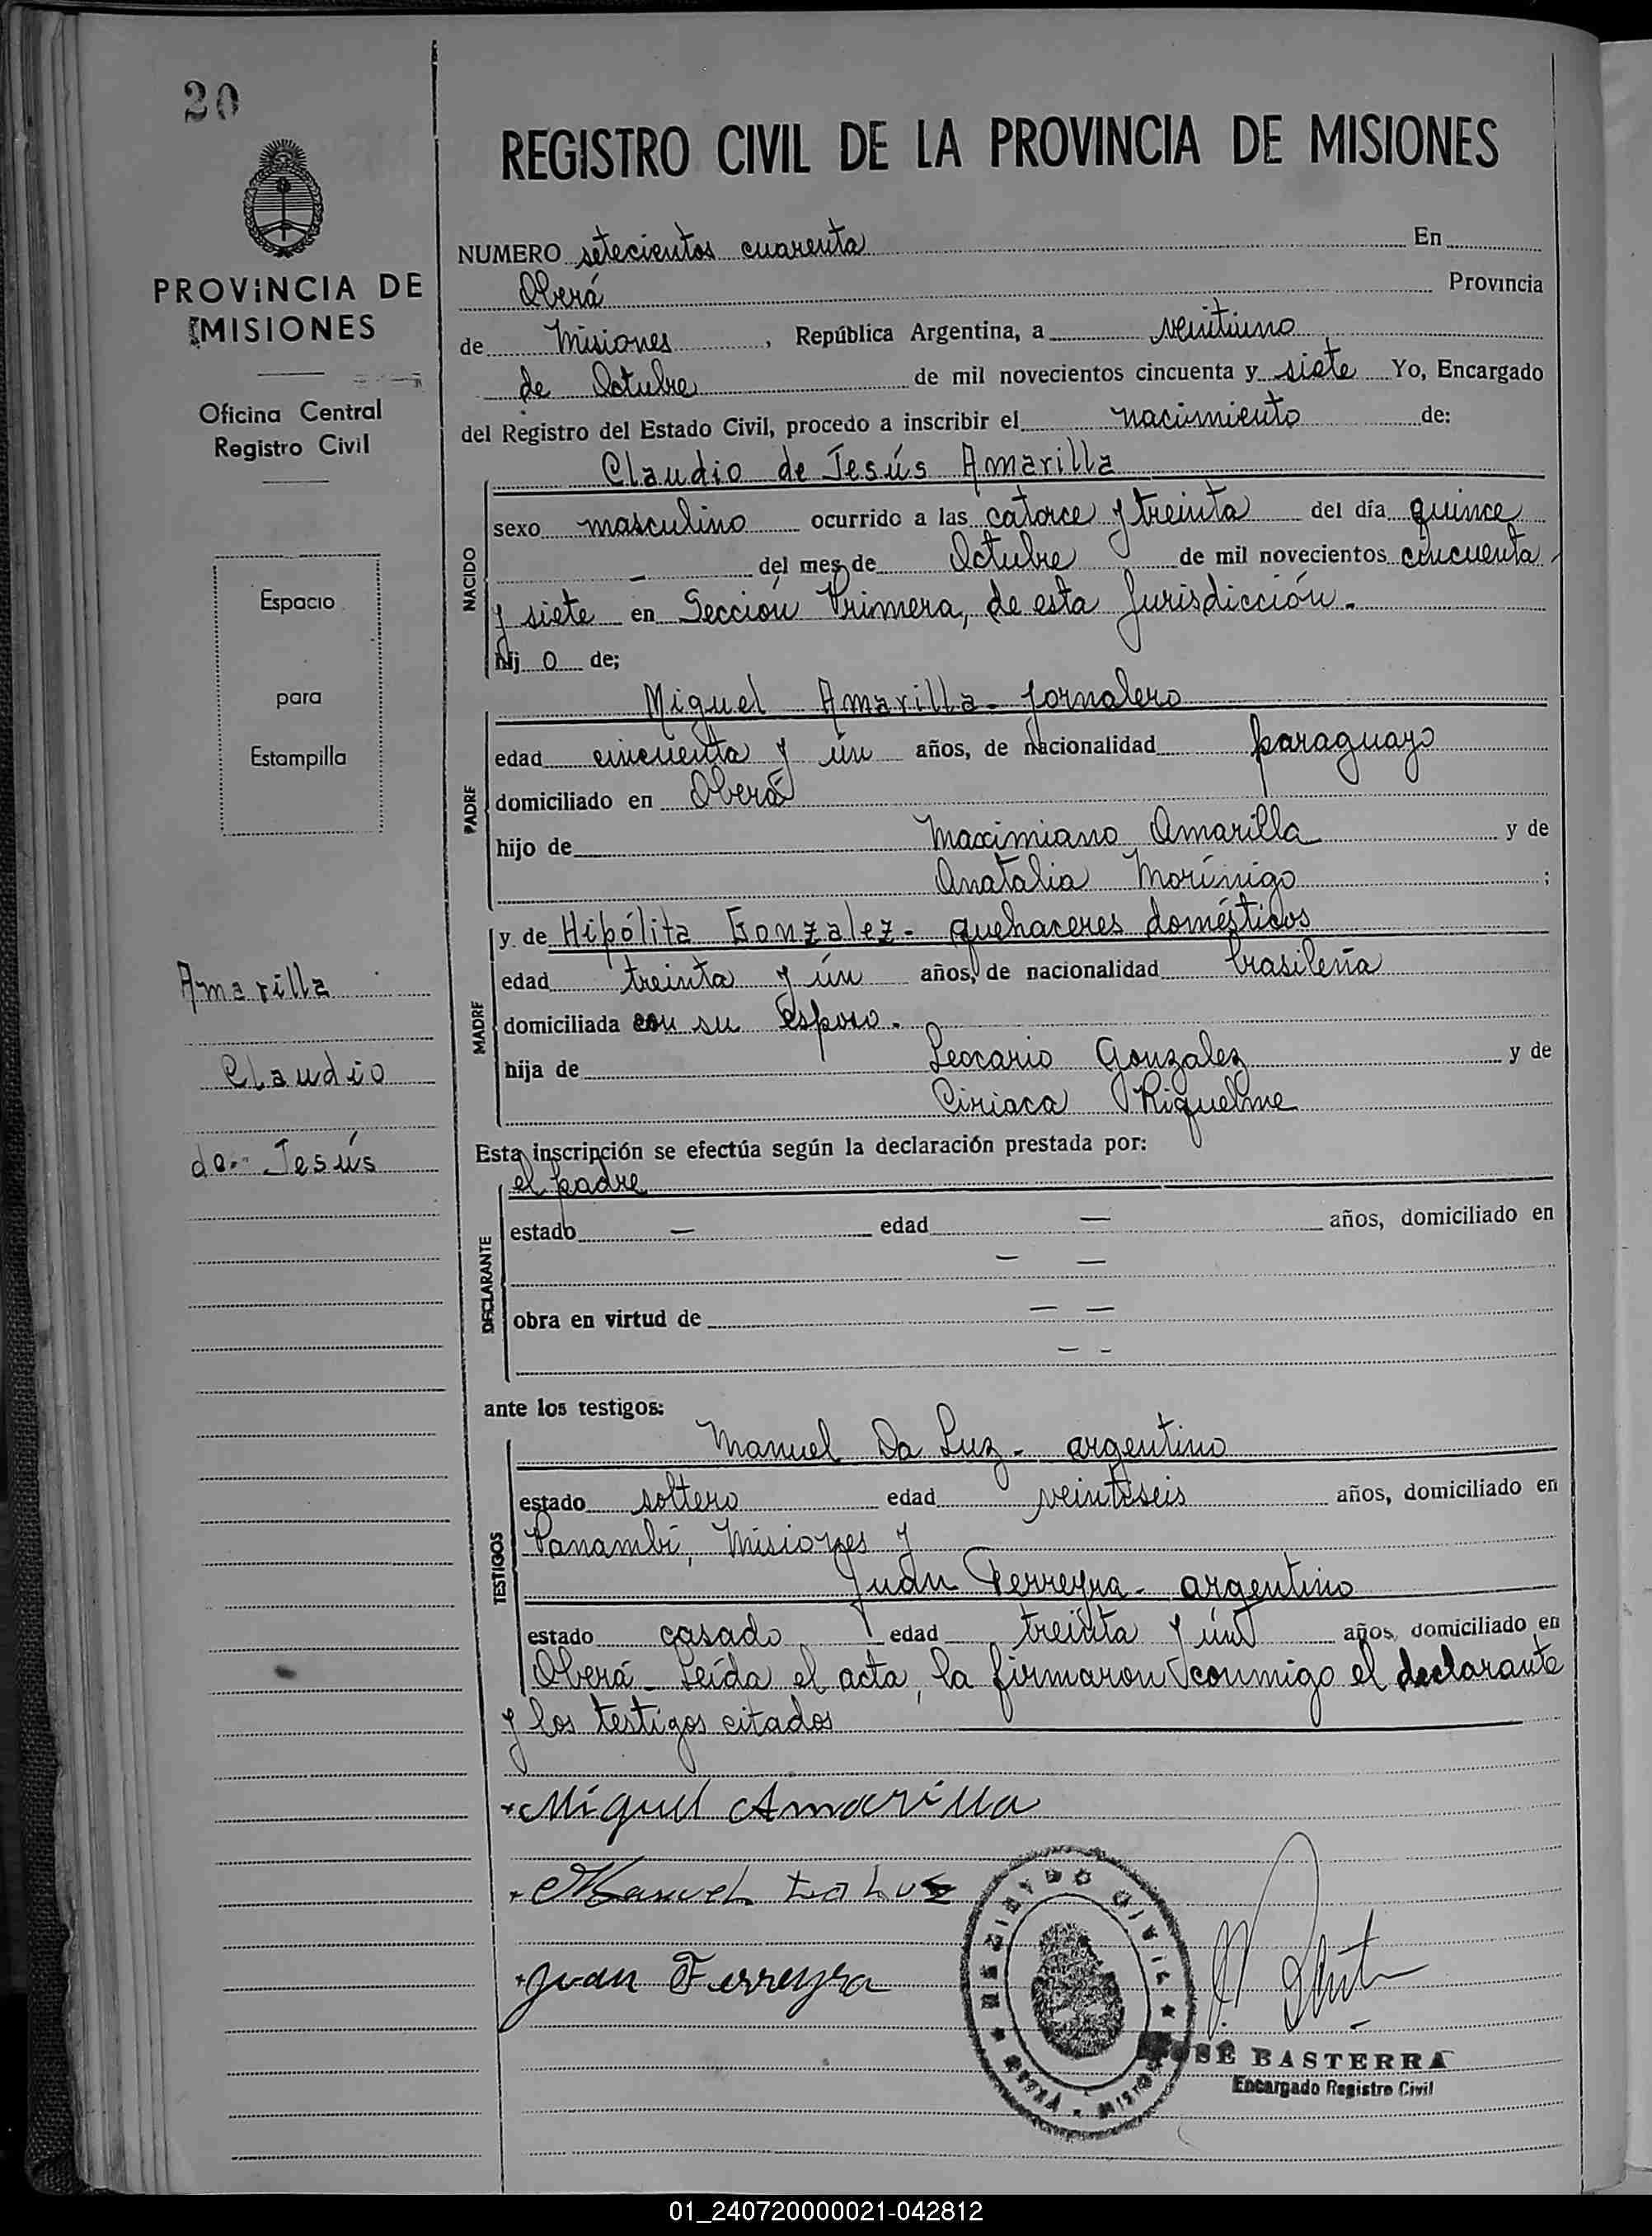 20
PROVINCIA DE
MISIONES
Oficina Central
Registro Civil
Espacio
para
Estampilla
Amarilla
Claudio
de Jesús
REGISTRO CIVIL DE LA PROVINCIA DE MISIONES
NUMERO setecientos cuarenta En
Oberá Provincia
de Misiones, República Argentina, a veintiuno
de Octubre de mil novecientos cincuenta y siete Yo, Encargado
del Registro del Estado Civil, procedo a inscribir el nacimiento de:
Claudio de Jesús Amarilla
NACIDO
sexo masculino ocurrido a las catorce y treinta del día quince
— del mes de Octubre de mil novecientos cincuenta
y siete en Sección Primera, de esta Jurisdicción.
hij o de;
Miguel Amarilla - Jornalero
PADRE
edad cincuenta y ún años, de nacionalidad paraguayo
domiciliado en Oberá
hijo de Maximiano Amarilla y de
Anatalia Morínigo ;
y de Hipólita Gonzalez - quehaceres domésticos
MADRE
edad treinta y ún años, de nacionalidad brasileña
domiciliada con su esposo.
hija de Leocario Gonzalez y de
Ciriaca Riquelme
Esta inscripción se efectúa según la declaración prestada por:
el padre
DECLARANTE
estado — edad — años, domiciliado en
— —
obra en virtud de — —
— -
ante los testigos:
Manuel Da Luz - argentino
TESTIGOS
estado soltero edad veintiseis años, domiciliado en
Panambí, Misiones y
Juan Ferreyra - argentino
estado casado edad treinta y ún años, domiciliado en
Oberá - Leída el acta, la firmaron conmigo el declarante
y los testigos citados
Miguel Amarilla
Manuel Da Luz
Juan Ferreyra
REGISTRO CIVIL
OBERÁ - MISIONES
JOSÉ BASTERRA
Encargado Registro Civil
01_240720000021-042812